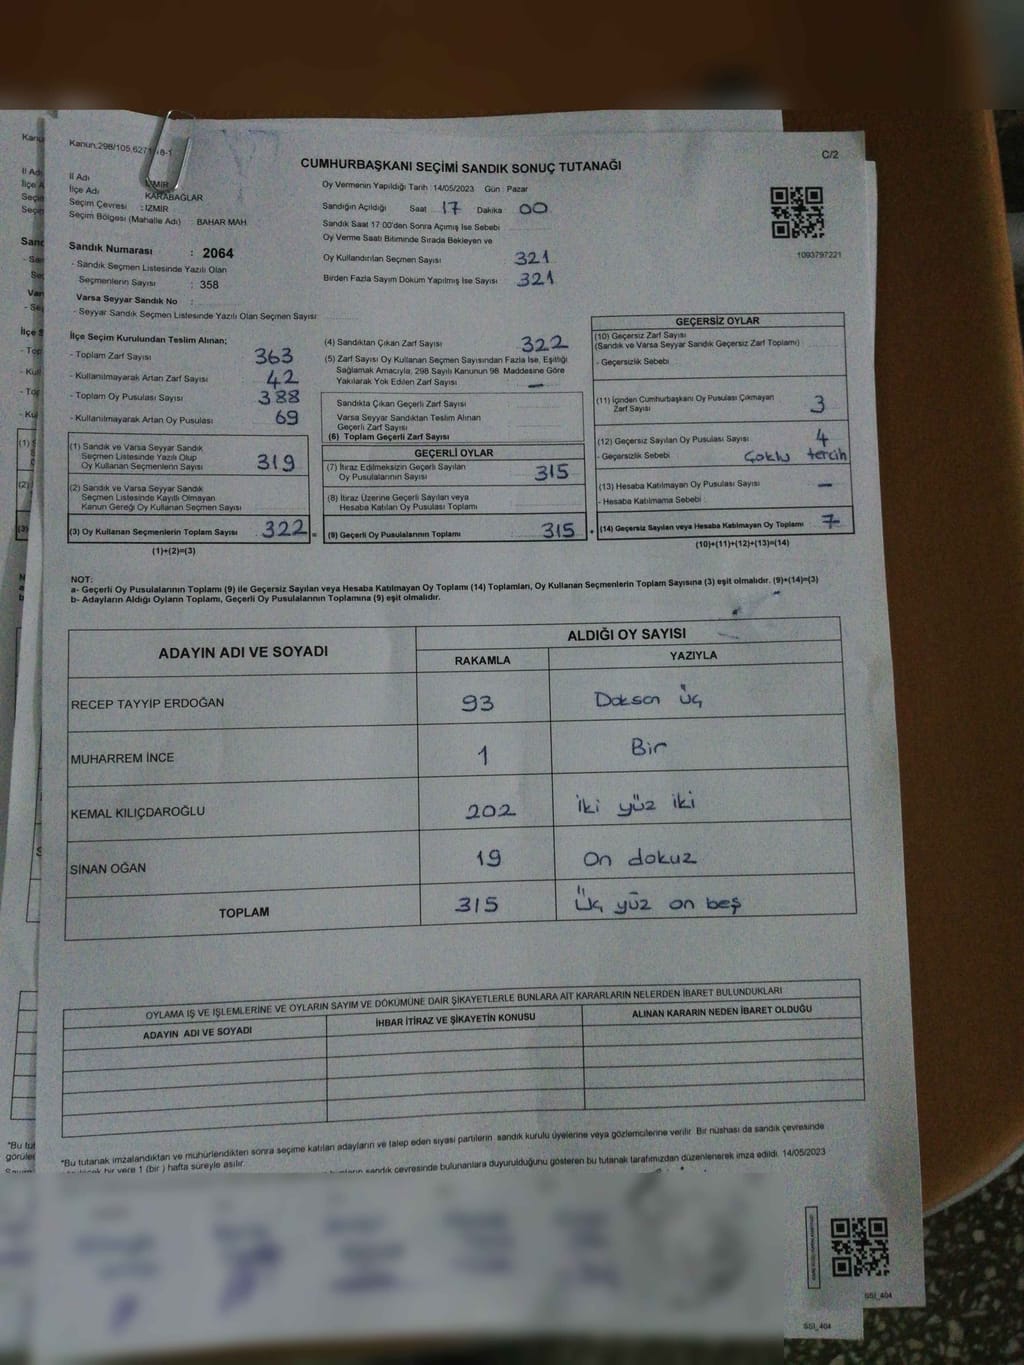 CUMHURBAŞKANI SEÇİMİ SANDIK SONUÇ TUTANAĞI
C/2
İl Adı : İZMİR
İlçe Adı : KARABAĞLAR
Seçim Çevresi : İZMİR
Seçim Bölgesi (Mahalle Adı) : BAHAR MAH.
Sandık Numarası : 2064
- Sandık Seçmen Listesinde Yazılı Olan
Seçmenlerin Sayısı : 358
Varsa Seyyar Sandık No :
- Seyyar Sandık Seçmen Listesinde Yazılı Olan Seçmen Sayısı:
Oy Vermenin Yapıldığı Tarih : 14/05/2023 Gün : Pazar
Sandığın Açıldığı Saat 17 Dakika 00
Sandık Saat 17:00'den Sonra Açımış İse Sebebi
Oy Verme Saati Bitiminde Sırada Bekleyen ve
Oy Kullandırılan Seçmen Sayısı 321
Birden Fazla Sayım Döküm Yapılmış İse Sayısı 321
1093797221
İlçe Seçim Kurulundan Teslim Alınan;
- Toplam Zarf Sayısı 363
- Kullanılmayarak Artan Zarf Sayısı 42
- Toplam Oy Pusulası Sayısı 388
- Kullanılmayarak Artan Oy Pusulası 69
(1) Sandık ve Varsa Seyyar Sandık
Seçmen Listesinde Yazılı Olup
Oy Kullanan Seçmenlerin Sayısı 319
(2) Sandık ve Varsa Seyyar Sandık
Seçmen Listesinde Kayıtlı Olmayan
Kanun Gereği Oy Kullanan Seçmen Sayısı
(3) Oy Kullanan Seçmenlerin Toplam Sayısı 322
(1)+(2)=(3)
(4) Sandıktan Çıkan Zarf Sayısı 322
(5) Zarf Sayısı Oy Kullanan Seçmen Sayısından Fazla İse, Eşitliği
Sağlamak Amacıyla, 298 Sayılı Kanunun 98. Maddesine Göre
Yakılarak Yok Edilen Zarf Sayısı —
Sandıkta Çıkan Geçerli Zarf Sayısı
Varsa Seyyar Sandıktan Teslim Alınan
Geçerli Zarf Sayısı
(6) Toplam Geçerli Zarf Sayısı
GEÇERLİ OYLAR
(7) İtiraz Edilmeksizin Geçerli Sayılan
Oy Pusulalarının Sayısı 315
(8) İtiraz Üzerine Geçerli Sayılan veya
Hesaba Katılan Oy Pusulası Toplamı
= (9) Geçerli Oy Pusulalarının Toplamı 315
GEÇERSİZ OYLAR
(10) Geçersiz Zarf Sayısı
(Sandık ve Varsa Seyyar Sandık Geçersiz Zarf Toplamı)
- Geçersizlik Sebebi
(11) İçinden Cumhurbaşkanı Oy Pusulası Çıkmayan
Zarf Sayısı 3
(12) Geçersiz Sayılan Oy Pusulası Sayısı 4
- Geçersizlik Sebebi Çoklu tercih
(13) Hesaba Katılmayan Oy Pusulası Sayısı —
- Hesaba Katılmama Sebebi
+ (14) Geçersiz Sayılan veya Hesaba Katılmayan Oy Toplamı 7
(10)+(11)+(12)+(13)=(14)
NOT:
a- Geçerli Oy Pusulalarının Toplamı (9) ile Geçersiz Sayılan veya Hesaba Katılmayan Oy Toplamı (14) Toplamları, Oy Kullanan Seçmenlerin Toplam Sayısına (3) eşit olmalıdır. (9)+(14)=(3)
b- Adayların Aldığı Oyların Toplamı, Geçerli Oy Pusulalarının Toplamına (9) eşit olmalıdır.
ADAYIN ADI VE SOYADI
ALDIĞI OY SAYISI
RAKAMLA YAZIYLA
RECEP TAYYİP ERDOĞAN 93 Doksan üç
MUHARREM İNCE 1 Bir
KEMAL KILIÇDAROĞLU 202 İki yüz iki
SİNAN OĞAN 19 On dokuz
TOPLAM 315 Üç yüz on beş
OYLAMA İŞ VE İŞLEMLERİNE VE OYLARIN SAYIM VE DÖKÜMÜNE DAİR ŞİKAYETLERLE BUNLARA AİT KARARLARIN NELERDEN İBARET BULUNDUKLARI
ADAYIN ADI VE SOYADI İHBAR İTİRAZ VE ŞİKAYETİN KONUSU ALINAN KARARIN NEDEN İBARET OLDUĞU
*Bu tutanak imzalandıktan ve mühürlendikten sonra seçime katılan adayların ve talep eden siyasi partilerin sandık kurulu üyelerine veya gözlemcilerine verilir. Bir nüshası da sandık çevresinde
bir yere 1 (bir ) hafta süreyle asılır.
sandık çevresinde bulunanlara duyurulduğunu gösteren bu tutanak tarafımızdan düzenlenerek imza edildi. 14/05/2023
SSI_404
SSI_404